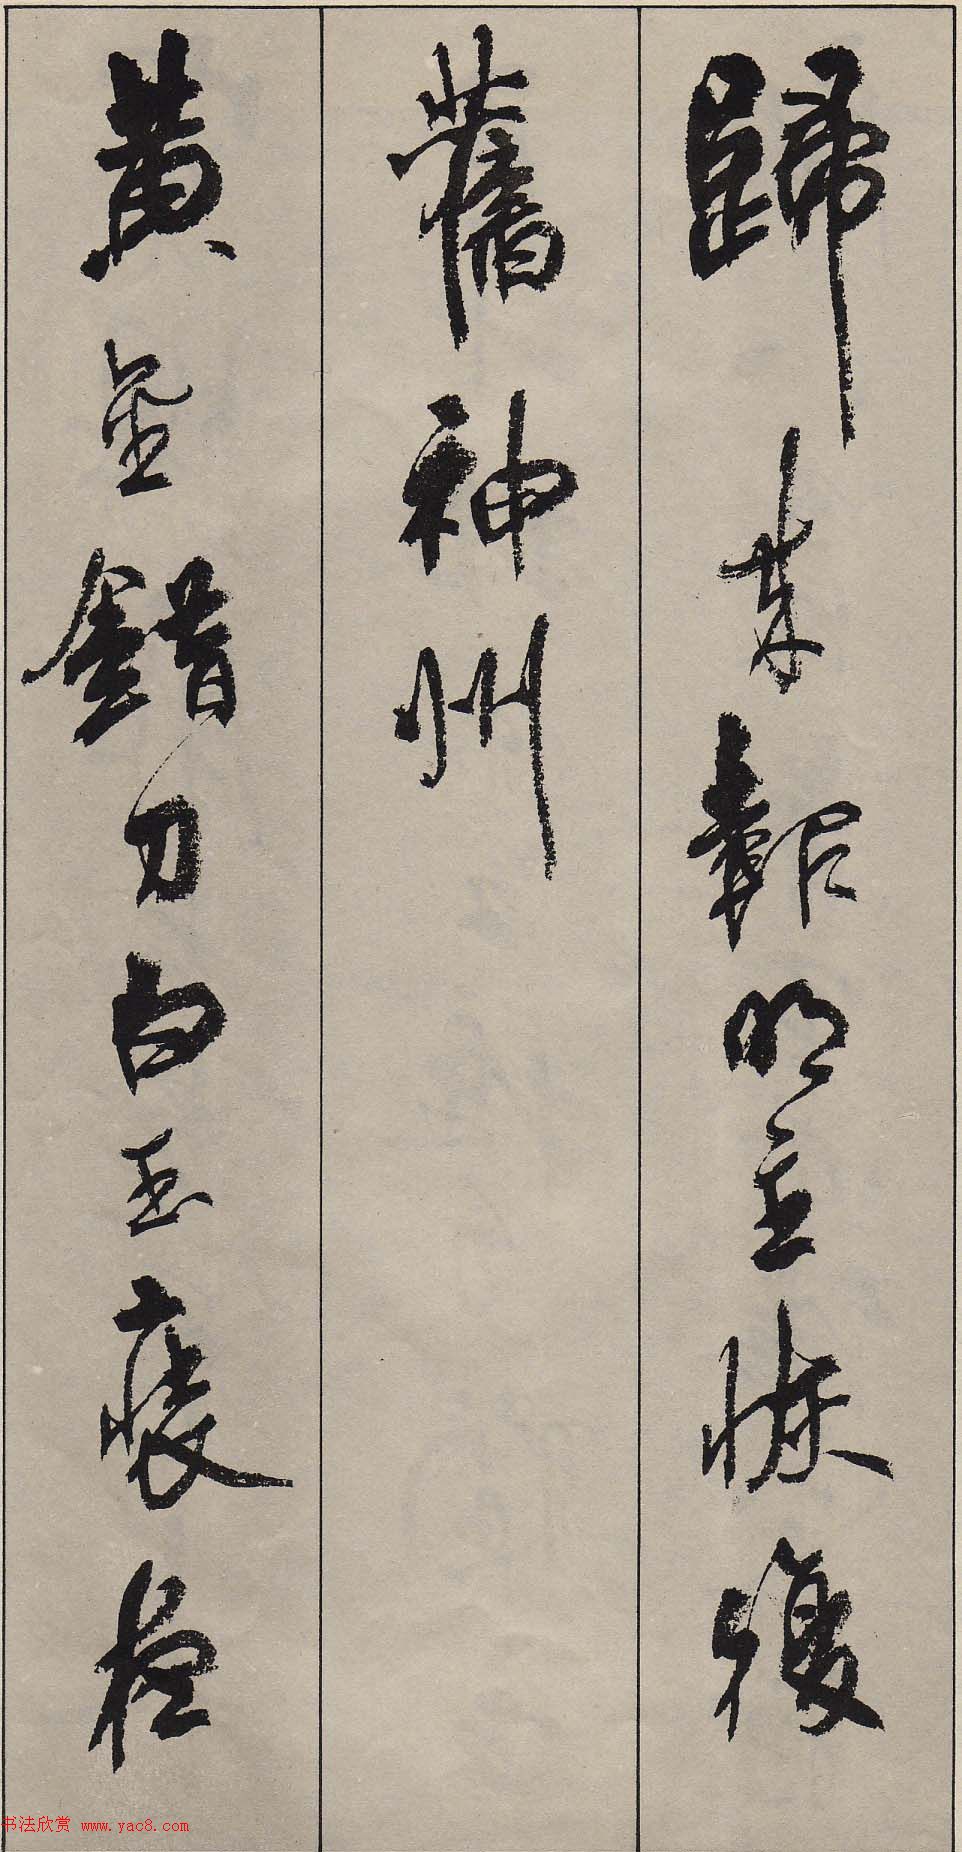 歸来報明主恢復
舊神州
黄金錯刀白玉裝夜
书法欣赏 www.yac8.com